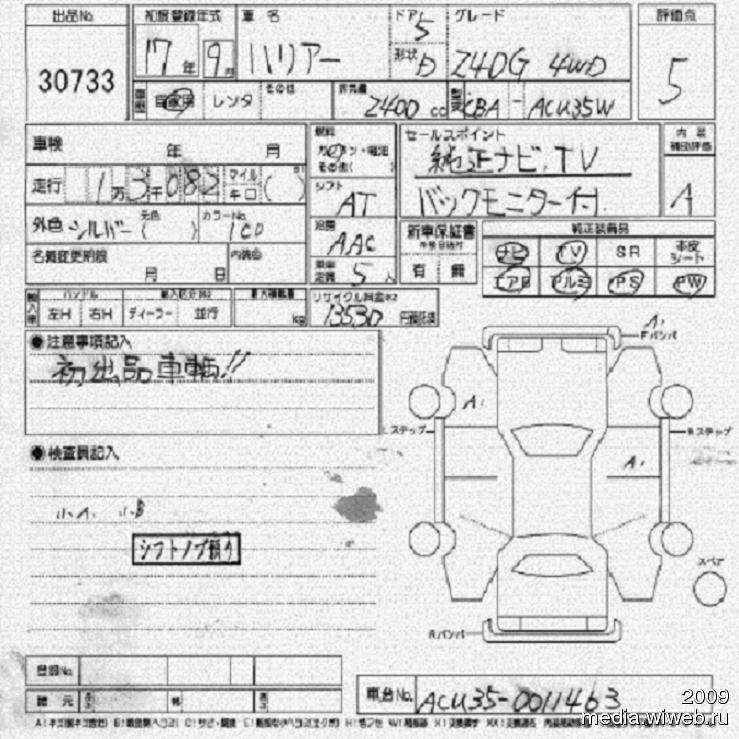 出品No. 初度登録年式 車名 ドア 5 グレード 評価点
30733 17年 9月 ハリアー 形状 D 240G 4WD 5
車歴 自家用 レンタ その他 排気量 2400 cc 型式 CBA - ACU35W
車検 年 月 燃料 ガソリン・軽油 その他( ) セールスポイント 内装補助評価
純正ナビ.TV
走行 1万3千082 マイル キロ ( ) シフト AT バックモニター付. A
外色 シルバー 元色( ) カラーNo. 1C0 冷房 AAC 新車保証書 純正装備品
有 無 ナビ TV SR 本皮シート
名義変更期限 月 日 内装色 乗車定員 5 エアB アルミ PS PW
輸入車 ハンドル 左H 右H ディーラー 並行 最大積載量 kg リサイクル料金 13530 円預託済
●注意事項記入
初出品車輌!!
A1 Fバンパ
A1
Lステップ Rステップ
●検査員記入
A1
小A. 小B
シフトノブ預り
スペア
Rバンパ
登録No.
諸元 長さ 幅 高さ
車台No. ACU35-0011463
2009
media.wiweb.ru